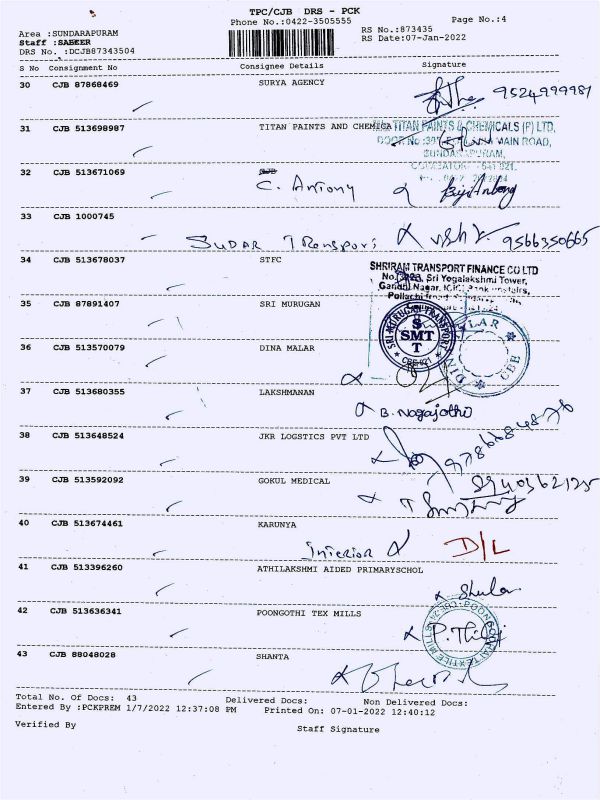 TPC/CJB DRS - PCK
Phone No.:0422-3505555
Page No.:4
Area :SUNDARAPURAM
RS No.:873435
Staff :SABEER
RS Date:07-Jan-2022
DRS No. :DCJB87343504
S No Consignment No Consignee Details Signature
30 CJB 87868469 SURYA AGENCY
9524999981
31 CJB 513698987 TITAN PAINTS AND CHEMICA
TITAN PAINTS & CHEMICALS (P) LTD,
MAIN ROAD,
SUNDARAPURAM,
32 CJB 513671069
C. Antony
33 CJB 1000745
SUDAR Transport
9566350665
34 CJB 513678037 STFC
SHRIRAM TRANSPORT FINANCE CO LTD
Sri Yogalakshmi Tower,
Gandhi Nagar,
Pollachi
35 CJB 87891407 SRI MURUGAN
SRI MURUGAN TRANSPORT
SMT
36 CJB 513570079 DINA MALAR
DINA MALAR
CBE
37 CJB 513680355 LAKSHMANAN
B. Nagajothi
38 CJB 513648524 JKR LOGSTICS PVT LTD
39 CJB 513592092 GOKUL MEDICAL
40 CJB 513674461 KARUNYA
Interior
D/L
41 CJB 513396260 ATHILAKSHMI AIDED PRIMARYSCHOL
42 CJB 513636341 POONGOTHI TEX MILLS
43 CJB 88048028 SHANTA
Total No. Of Docs: 43 Delivered Docs: Non Delivered Docs:
Entered By :PCKPREM 1/7/2022 12:37:08 PM Printed On: 07-01-2022 12:40:12
Verified By Staff Signature